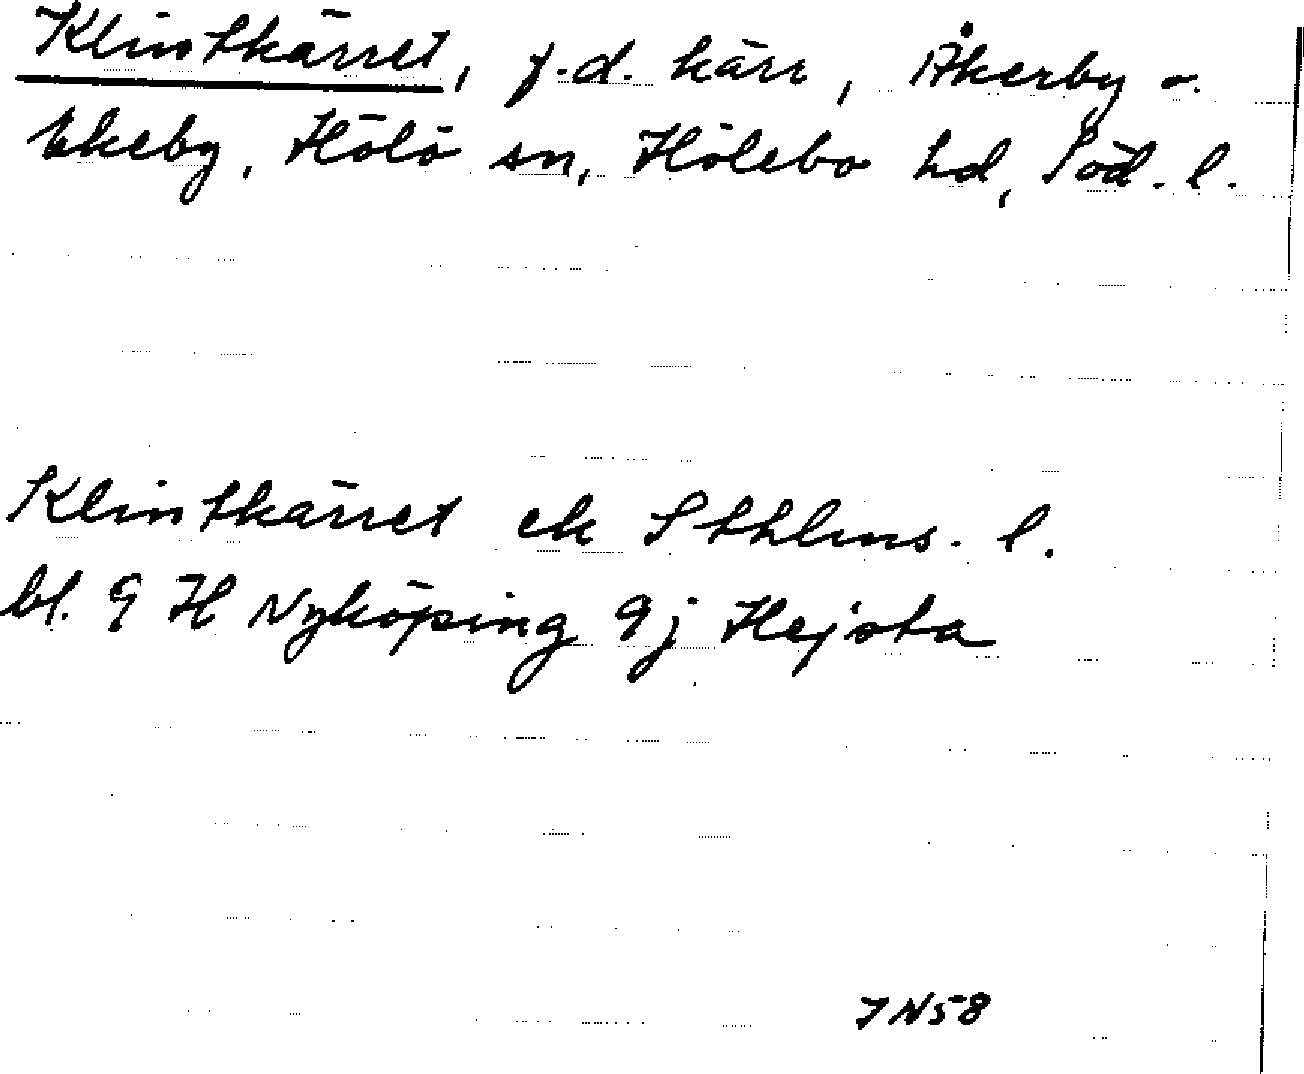 Klintkärret, f.d. kärr, Åkerby o.
Ekeby, Hölö sn, Hölebo hd, Söd. l.
Klintkärret ek Sthlms. l.
bl. 9 H Nyköping 9j Hejsta
JN58